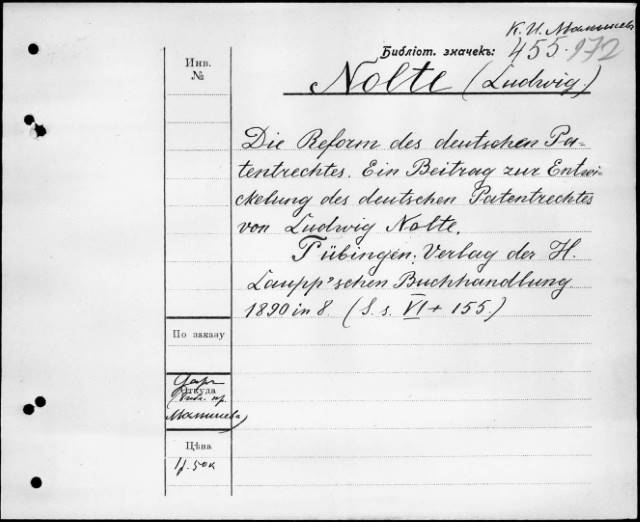 К. И. Малышев
Бібліот. значекъ: 455. 972
Инв.
№
Nolte (Ludwig.)
Die Reform des deutschen Pa-
tentrechtes. Ein Beitrag zur Entwi-
ckelung des deutschen Patentrechtes
von Ludwig Nolte.
Tübingen: Verlag der H.
Laupp'schen Buchhandlung
1890 in 8. (S. s. VI + 155.)
По заказу
Даръ
Откуда
Малышева
Цѣна
1 р. 50 к